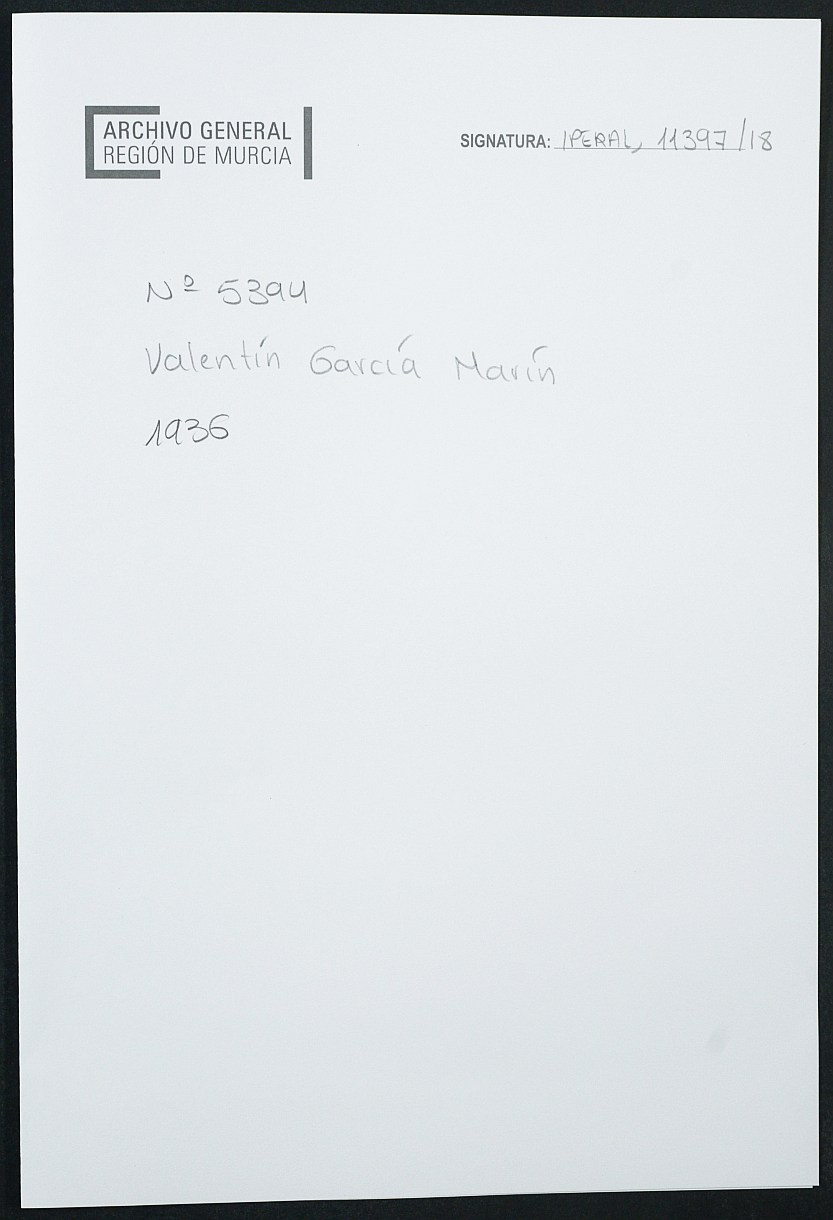 ARCHIVO GENERAL
REGIÓN DE MURCIA
SIGNATURA: IPERAL, 11397/18
Nº 5394
Valentín García Marín
1936